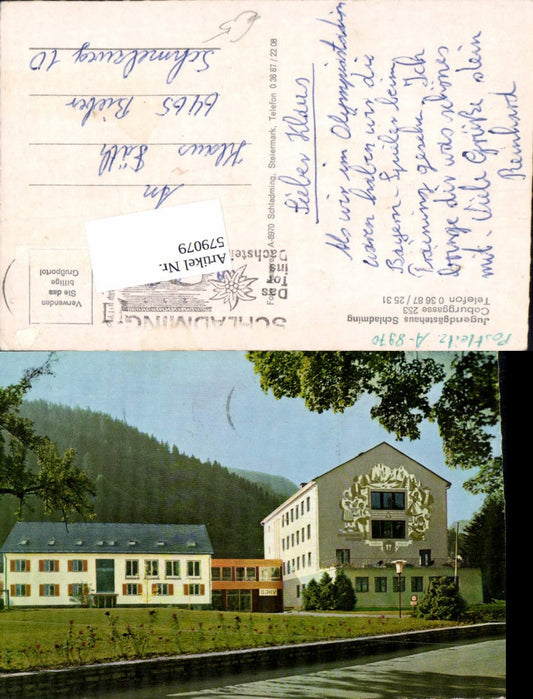 Jugendgästehaus Schladming
Coburggasse 253
Telefon 0 36 87 / 25 31
Postleitz. A-8970
Lieber Klaus
Als wir im Olympiastadion
waren haben wir die
Bayern-Spieler beim
Training gesehn. Ich
bringe dir was schönes
mit. Viele Grüße dein
Reinhard
A-8970 Schladming, Steiermark, Telefon 0 36 87 / 22 08
SCHLADMING
Das
Tor
ins
Dachstein
Verwenden
Sie das
billige
Grußportol
An
Klaus Fäth
6465 Bieber
Schmelzweg 10
Artikel Nr.
579079